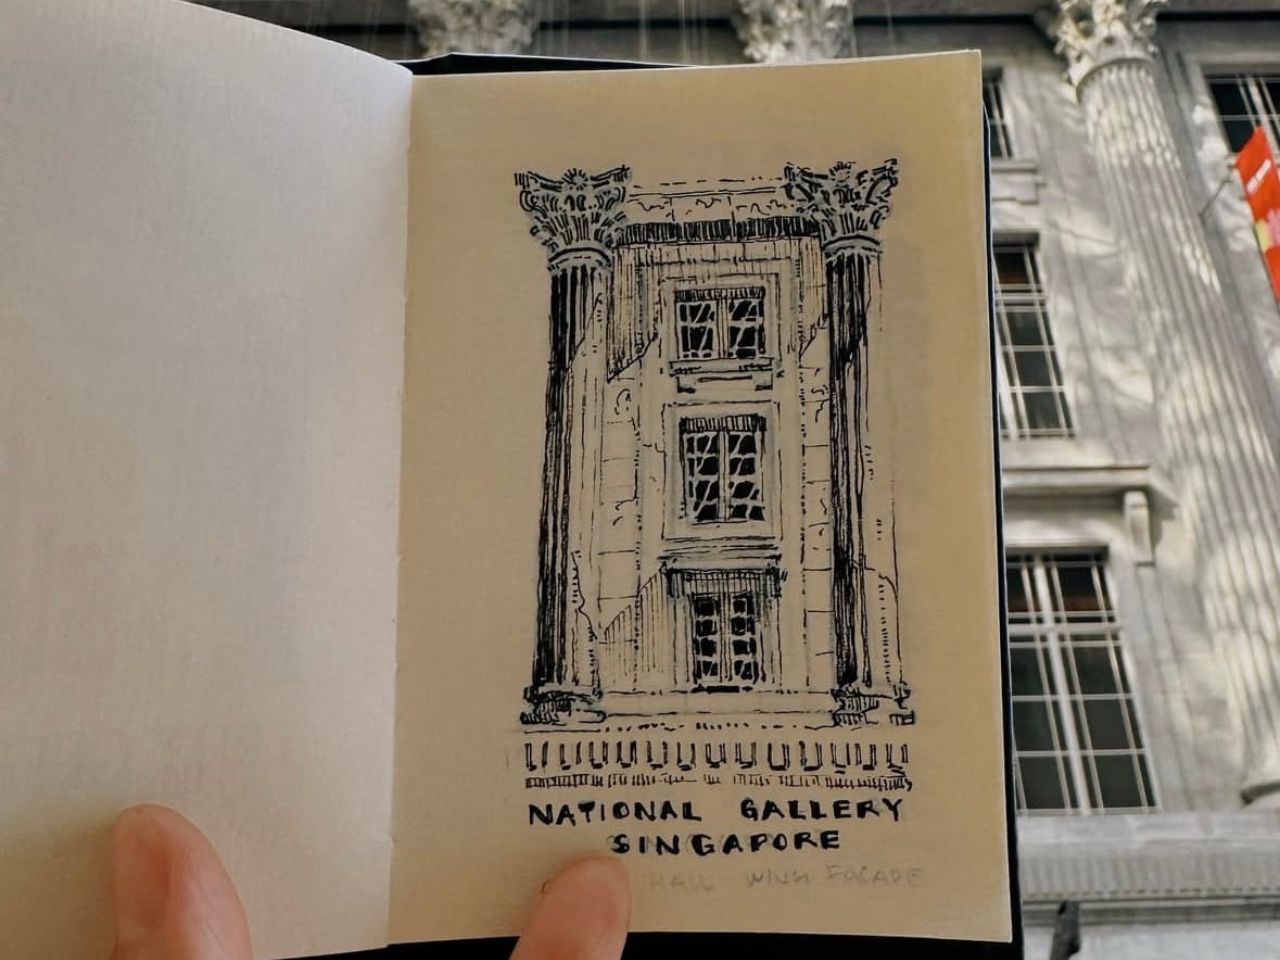 NATIONAL GALLERY
SINGAPORE
HALL WING FACADE